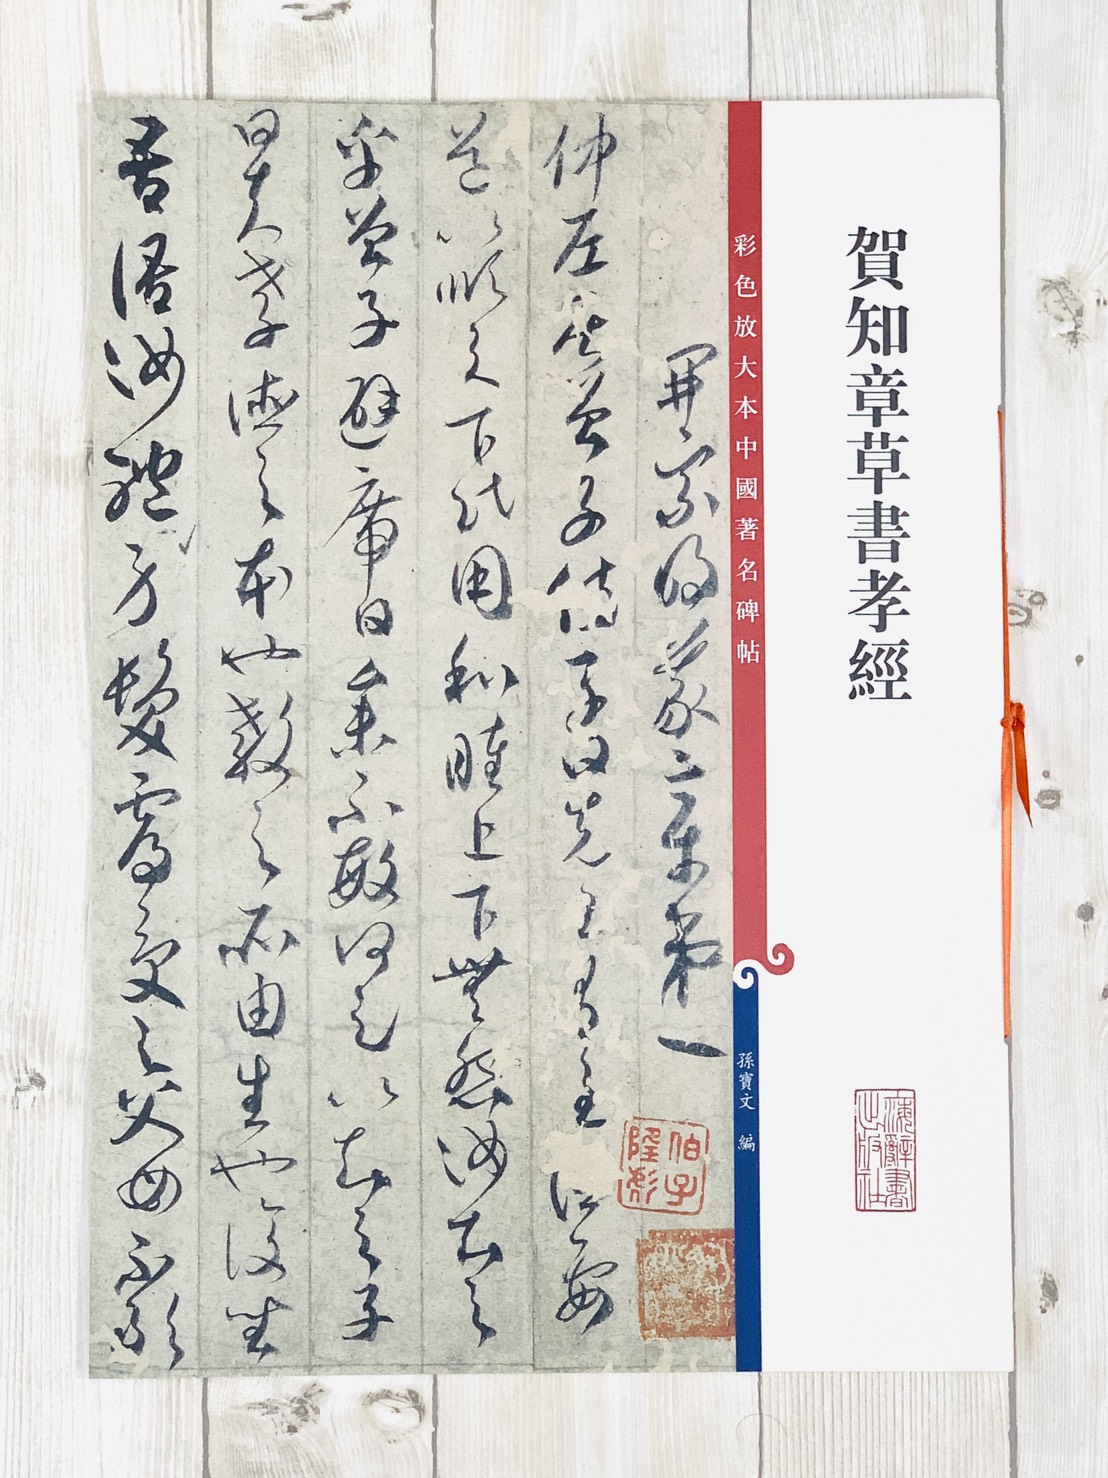 賀知章草書孝經
彩色放大本中國著名碑帖
孫寶文 編
開宗明義章第一
仲尼居曾子侍子曰先王有至德要
道以順天下民用和睦上下無怨汝知之
乎曾子避席曰參不敏何足以知之子
曰夫孝德之本也教之所由生也復坐
吾語汝體身髮膚受之父母不敢
海辭書
出版社